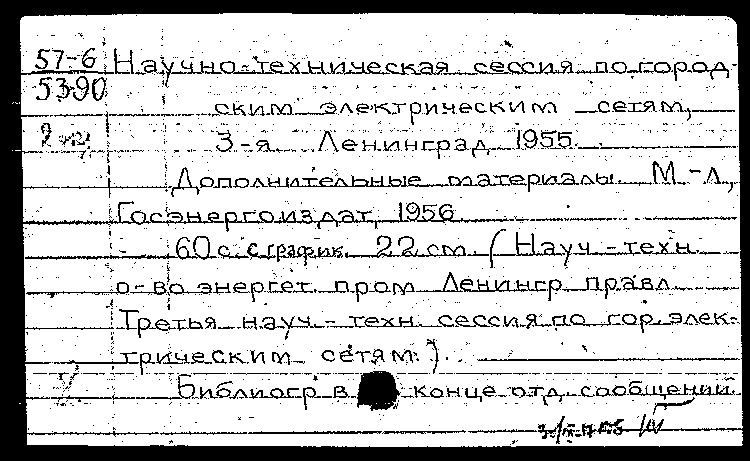 57-6 Научно-техническая сессия по город-
5390
ским электрическим сетям,
2 экз. 3-я. Ленинград, 1955.
Дополнительные материалы. М.-Л.,
Госэнергоиздат, 1956.
60 с. с график. 22 см. (Науч.-техн.
о-во энергет. пром. Ленингр. правл.
Третья науч.-техн. сессия по гор. элек-
трическим сетям.).
Библиогр в конце отд. сообщений